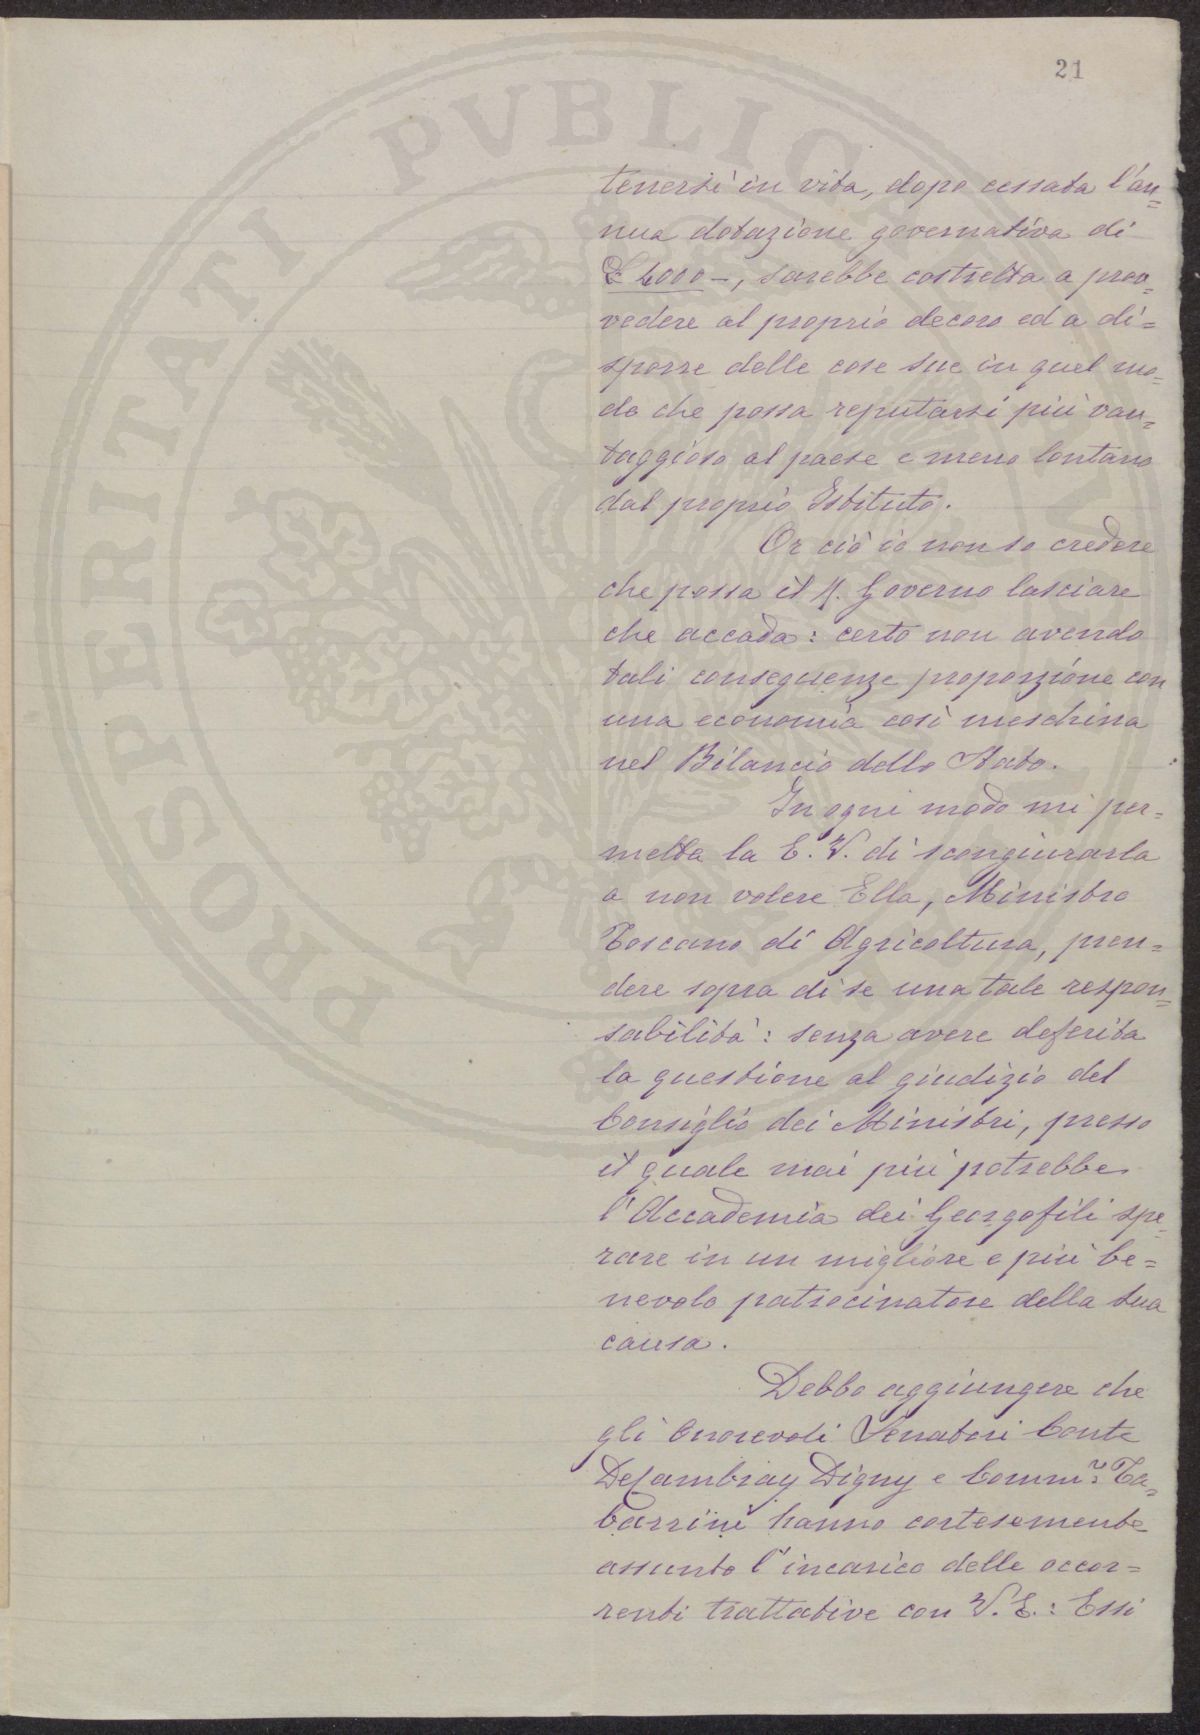 21
PVBLIC
PROSPERITATI
tenersi in vita, dopo cessata l'an=
nua dotazione governativa di
£ 6000 —, sarebbe costretta a prov=
vedere al proprio decoro ed a di=
sporre delle cose sue in quel mo=
do che possa reputarsi più van=
taggioso al paese e meno lontano
dal proprio Istituto.
Or ciò io non so credere
che possa il R. Governo lasciare
che accada: certo non avendo
tali conseguenze proporzione con
una economia così meschina
nel Bilancio dello Stato.
In ogni modo mi per=
metta la E. V. di scongiurarla
a non volere Ella, Ministro
Toscano di Agricoltura, pren=
dere sopra di se una tale respon=
sabilità: senza avere deferita
la questione al giudizio del
Consiglio dei Ministri, presso
il quale mai più potrebbe
l'Accademia dei Georgofili spe=
rare in un migliore e più be=
nevolo patrocinatore della sua
causa.
Debbo aggiungere che
gli Onorevoli Senatori Conte
De Cambray Digny e Comm.r Ta=
barrini hanno cortesemente
assunto l'incarico delle occor=
renti trattative con V. E.: Essi